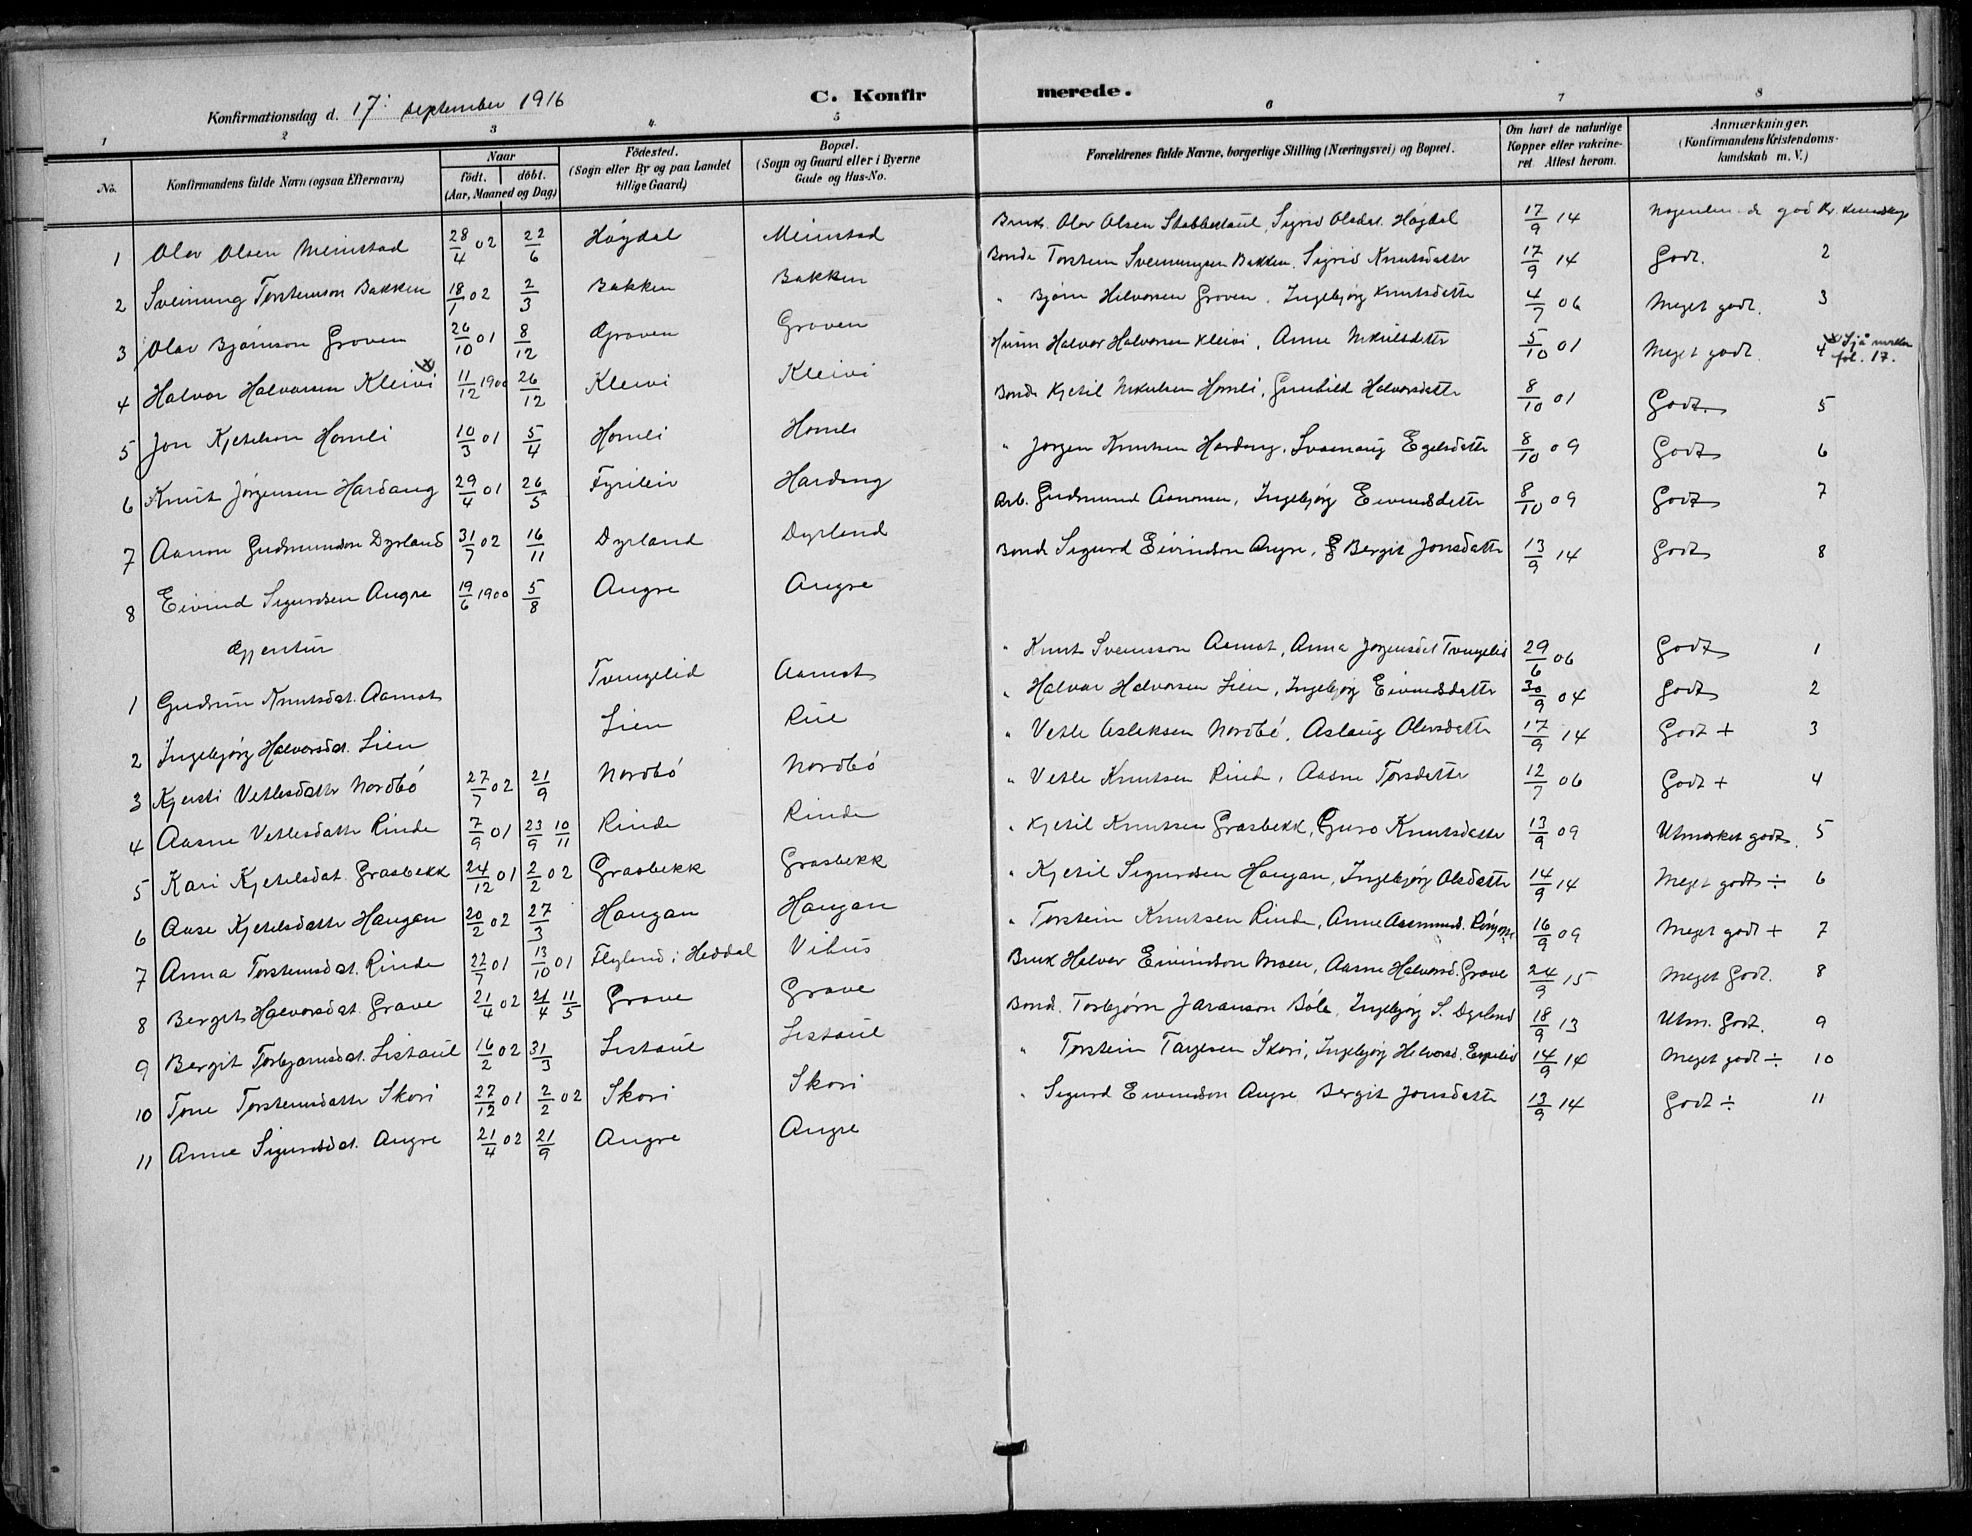 Konfirmationsdag d. 17. september 1916
C. Konfirmerede.
1 2 3 4. 5 6 7 8
No.
Konfirmandens fulde Navn (ogsaa Efternavn)
Naar
födt. döbt.
(Aar, Maaned og Dag)
Födested.
(Sogn eller By og paa Landet
tillige Gaard)
Bopæl.
(Sogn og Gaard eller i Byerne
Gade og Hus-No.
Forældrenes fulde Navne, borgerlige Stilling (Næringsvei) og Bopæl.
Om havt de naturlige
Kopper eller vakcine-
ret. Attest herom.
Anmærkninger.
(Konfirmandens Kristendoms-
kundskab m. V.)
1 Olav Olsen Meinstad 28/4 02 22/6 Høgdal Meinstad Bruk. Olav Olsen Stabbestaul, Sigrid Olsdat. Høgdal 17/9 14 god Kr. kundskap
2 Sveinung Torsteinson Bakken 18/1 02 2/3 Bakken Bakken Bonde Torstein Sveinungsen Bakken. Sigrid Knutsdatter 17/9 14 Godt. 2
3 Olav Bjørnson Groven 26/10 01 8/12 Groven Groven " Bjørn Halvorsen Groven. Ingebjørg Knutsdatter 4/7 06 Meget godt. 3
4 Halvor Halvorsen Kleivi x 11/12 1900 26/12 Kleivi Kleivi Husm Halvor Halvorsen Kleivi, Anne Nikulsdatter 5/10 01 Meget godt. 4 x Sjå merkn fol. 17.
5 Jon Kjetilson Homli 10/3 01 5/4 Homli Homli Bonde Kjetil Nikulsen Homli, Gunhild Halvorsdatter 8/10 01 Godt. 5
6 Knut Jørgensen Hardang 29/4 01 26/5 Fyrilein Hardang " Jørgen Knutsen Hardang. Svanaug Egelsdatter 8/10 09 Godt 6
7 Aanon Gudmundson Dyrland 31/7 02 16/11 Dyrland Dyrland Arb. Gudmund Aanonsen, Ingebjørg Eivindsdatter 8/10 09 Godt 7
8 Eivind Sigurdsen Angre 19/6 1900 5/8 Angre Angre Bonde Sigurd Eivindson Angre, Bergit Jonsdatter 13/9 14 Godt 8
Gjentur
1 Gudrun Knutsdat. Aamot Tvingelid Aamot " Knut Sveinsson Aamot, Anna Jørgensdat Tvingelid 29/6 06 Godt 1
2 Ingebjørg Halvorsdat. Lien Lien Rue " Halvor Halvorsen Lien, Ingebjørg Eivindsdatter 30/9 04 Godt 2
3 Kjersti Vetlesdatter Nordbö 27/7 02 21/9 Nordbö Nordbö " Vetle Asleksen Nordbö, Aslaug Olavsdatter 17/9 14 Godt + 3
4 Aasne Vetlesdatter Rinde 7/9 01 23/9 10/11 Rinde Rinde " Vetle Knutsen Rinde, Aasne Torsdatter 12/7 06 Godt + 4
5 Kari Kjetilsdat Grasbekk 24/12 01 2/2 02 Grasbekk Grasbekk " Kjetil Knutsen Grasbekk, Guro Knutsdatter 13/9 09 Utmerket godt. 5
6 Aase Kjetilsdatter Haugan 20/2 02 27/3 Haugan Haugan " Kjetil Sigurdsen Haugan, Ingebjørg Olsdatter 14/9 14 Meget godt ÷ 6
7 Anna Torsteinsdat. Rinde 22/7 01 13/10 01 Flyland i Heddal Vibus " Torstein Knutsen Rinde, Anne Aasmund. 16/9 09 Meget godt + 7
8 Bergit Halvorsdat. Grave 21/4 02 21/4 11/5 Grave Grave Bruk Halvor Eivindson Moen, Aasne Halvorsd. Grave 24/9 15 Meget Godt. 8
9 Bergit Torbjørnsdat. Listaul 16/2 02 31/3 Listaul Listaul Bond. Torbjørn Jaranson Böle, Ingebjørg S. Dyrland 18/9 13 Utm. Godt. 9
10 Tone Torsteinsdatter Skori 27/12 01 2/2 02 Skori Skori " Torstein Targesen Skori, Ingebjørg Halvorsd. Espelid 14/9 14 Meget godt ÷ 10
11 Anne Sigurdsdat. Angre 21/4 02 21/9 Angre Angre " Sigurd Eivindson Angre Bergit Jonsdatter 13/9 14 Godt ÷ 11